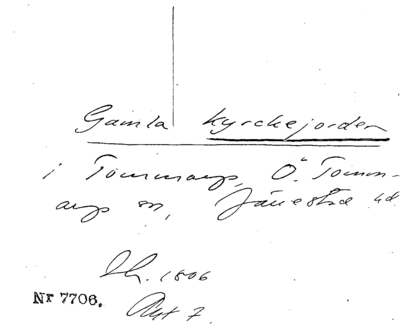 Gamla Kyrckejorden
i Tommarp, Ö. Tomm-
arp sn, Järrestad hd.
Sk. 1806
Nr 7706. Akt 7